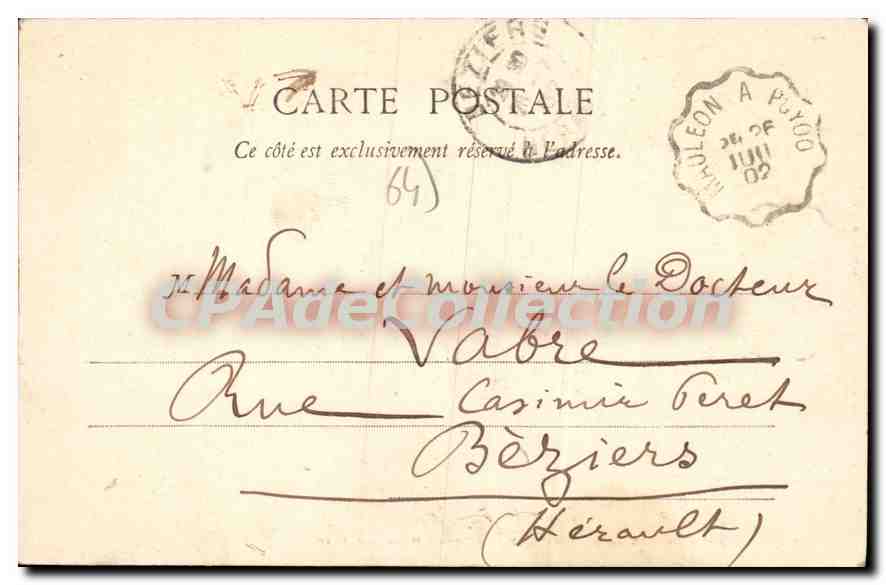 CARTE POSTALE
Ce côté est exclusivement réservé à l'adresse.
BEZIERS
MAULEON A PUYOO
25
JUIL
02
64)
M Madame et monsieur le Docteur
CPAdeCollection
Vabre
Rue Casimir Peret
Bèziers
(Hérault)